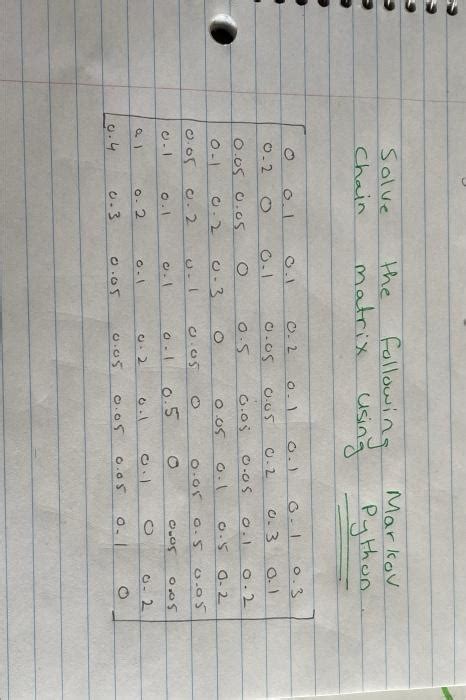 Solve the following Markov
Chain matrix using Python.
0 0.1 0.1 0.2 0.1 0.1 0.1 0.3
0.2 0 0.1 0.05 0.05 0.2 0.3 0.1
0.05 0.05 0 0.5 0.05 0.05 0.1 0.2
0.1 0.2 0.3 0 0.05 0.1 0.5 0.2
0.05 0.2 0.1 0.05 0 0.05 0.5 0.05
0.1 0.1 0.1 0.1 0.5 0 0.05 0.05
0.1 0.2 0.1 0.2 0.1 0.1 0 0.2
0.4 0.3 0.05 0.05 0.05 0.05 0.1 0